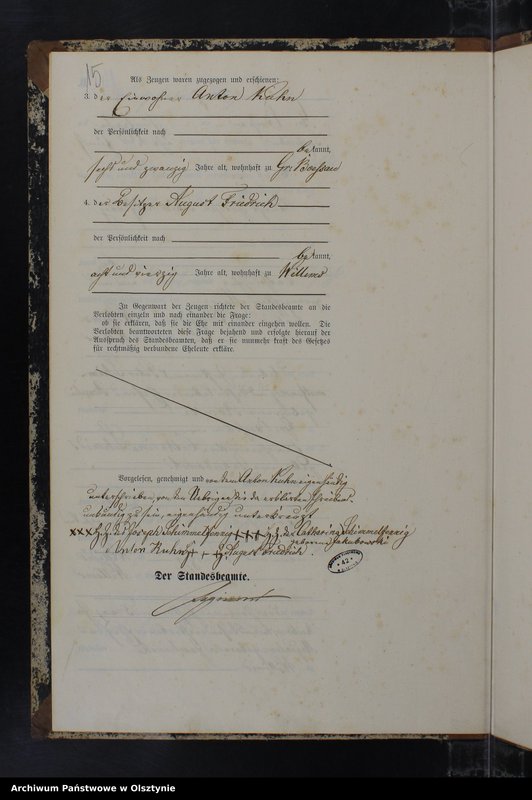 15
Als Zeugen waren zugezogen und erschienen:
3. der Einwohner Anton Kuhn
der Persönlichkeit nach
bekannt,
sechs und zwanzig Jahre alt, wohnhaft zu Gr.
4. der Besitzer August Friedrich
der Persönlichkeit nach
bekannt,
acht und vierzig Jahre alt, wohnhaft zu Willims
In Gegenwart der Zeugen richtete der Standesbeamte an die
Verlobten einzeln und nach einander die Frage:
ob sie erklären, daß sie die Ehe mit einander eingehen wollen. Die
Verlobten beantworteten diese Frage bejahend und erfolgte hierauf der
Ausspruch des Standesbeamten, daß er sie nunmehr kraft des Gesetzes
für rechtmäßig verbundene Eheleute erkläre.
Vorgelesen, genehmigt und von dem Anton Kuhn eigenhändig
unterschrieben, von den Uebrigen, die
unkundig zu sein, eigenhändig unterkreuzt
xxx des Joseph Schimmelpfennig +++ der Katharina Schimmelpfennig
geborene Jakubowski
Anton Kuhn +++ August Friedrich.
42
Der Standesbeamte.
Archiwum Państwowe w Olsztynie